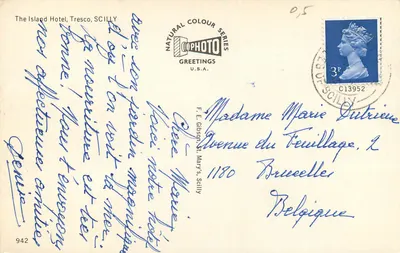 The Island Hotel, Tresco, SCILLY
NATURAL COLOUR SERIES
PHOTO
GREETINGS
U.S.A.
0,5
3P
C13952
SCILLY
Chère Marie,
Voici notre hôtel
avec son jardin magnifique
et d'où l'on voit la mer.
La nourriture est très
bonne! Nous t'envoyons
nos affectueuses amitiés
Denise
F. E. Gibson, St. Mary's, Scilly
Madame Marie Dutrieue
Avenue du Feuillage, 2
1180 Bruxelles
Belgique
942